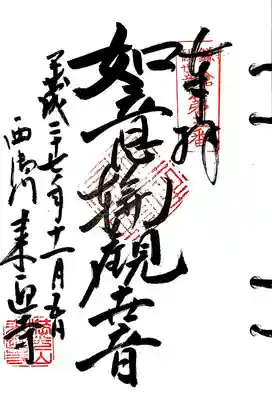 奉拝
如意輪観世音
平成二十七年十一月五日
西御門 来迎寺